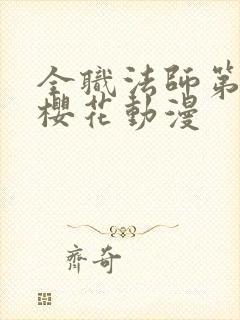 全職法師第
櫻花動漫
齊奇